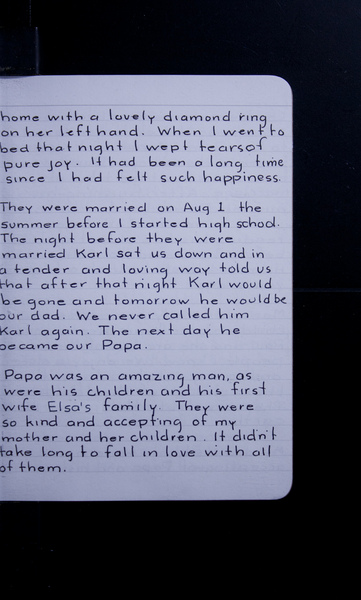 home with a lovely diamond ring
on her left hand. When I went to
bed that night I wept tears of
pure joy. It had been a long time
since I had felt such happiness.
They were married on Aug 1 the
summer before I started high school.
The night before they were
married Karl sat us down and in
a tender and loving way told us
that after that night Karl would
be gone and tomorrow he would be
our dad. We never called him
Karl again. The next day he
became our Papa.
Papa was an amazing man, as
were his children and his first
wife Elsa's family. They were
so kind and accepting of my
mother and her children. It didn't
take long to fall in love with all
of them.